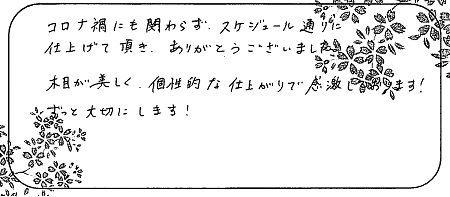 コロナ禍にも関わらず、スケジュール通りに
仕上げて頂き、ありがとうございました。
木目が美しく、個性的な仕上がりで感激しております!
ずっと大切にします!